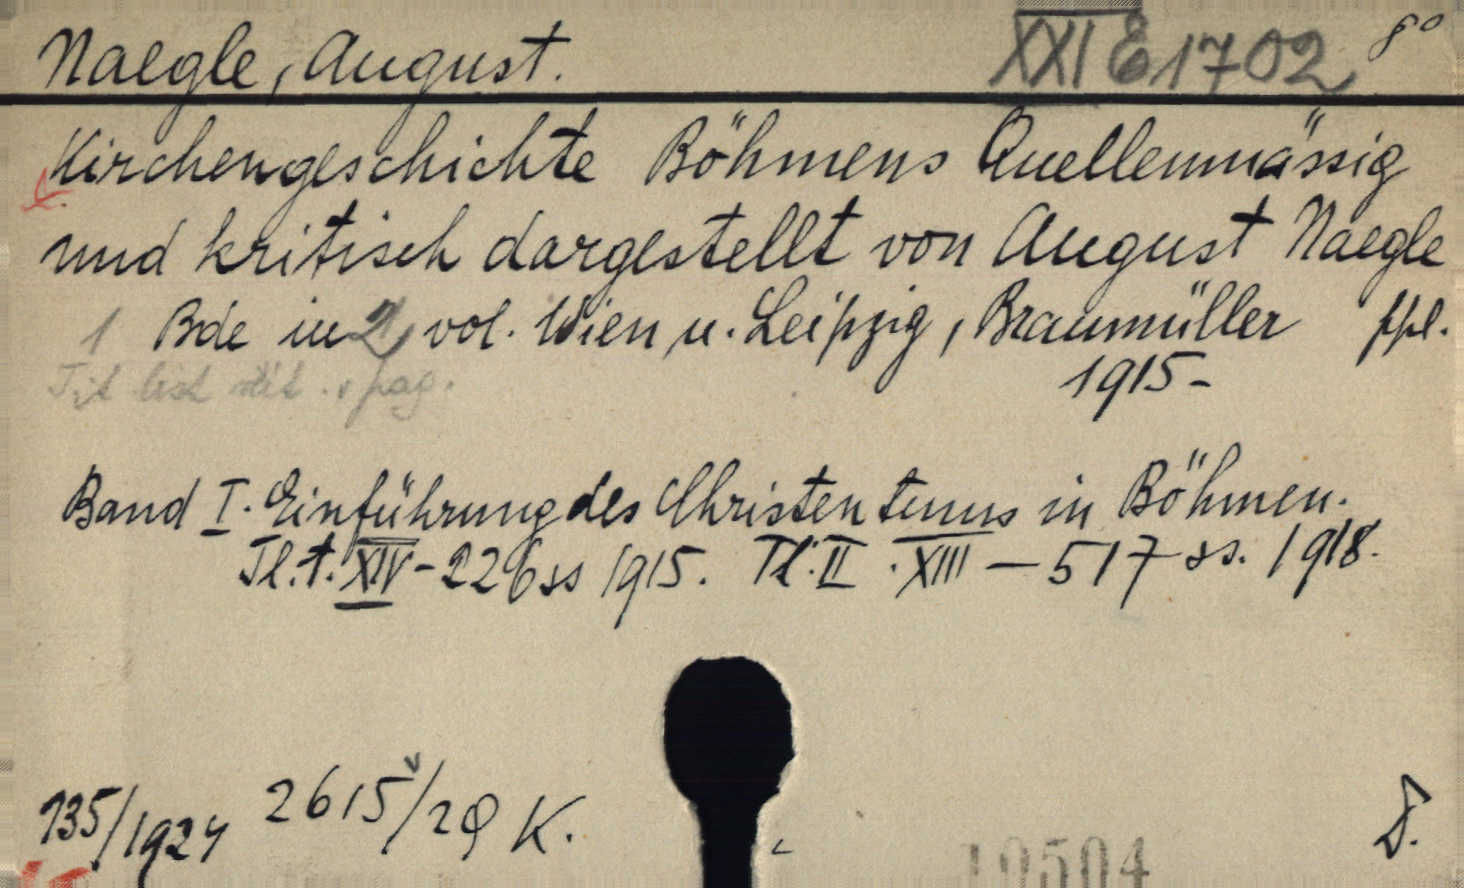 Naegle, August. XXI E 1702 8°
Kirchengeschichte Böhmens Quellenmässig
und kritisch dargestellt von August Naegle
1 Bde in 2 vol. Wien u. Leipzig, Braumüller ppl.
Tit list . pag. 1915-
Band I. Einführung des Christentums in Böhmen.
Tl. I. XIV-226 ss 1915. Tl. II. XIII-517 ss. 1918.
135/1924 2615/28 K. D.
19504